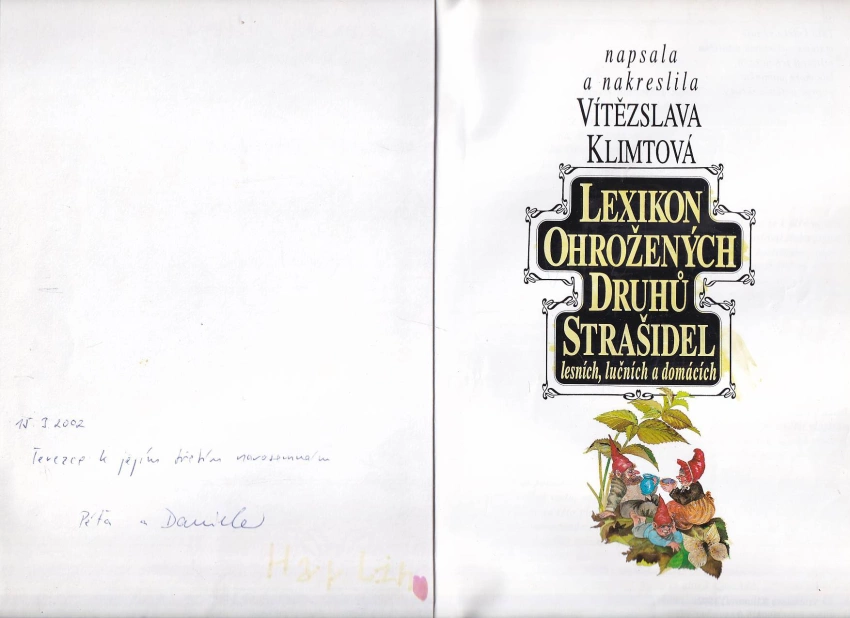 15. 3. 2002
Terezce k jejím třetím narozeninám
Péťa a Daniela
napsala
a nakreslila
VÍTĚZSLAVA
KLIMTOVÁ
LEXIKON
OHROŽENÝCH
DRUHŮ
STRAŠIDEL
lesních, lučních a domácích